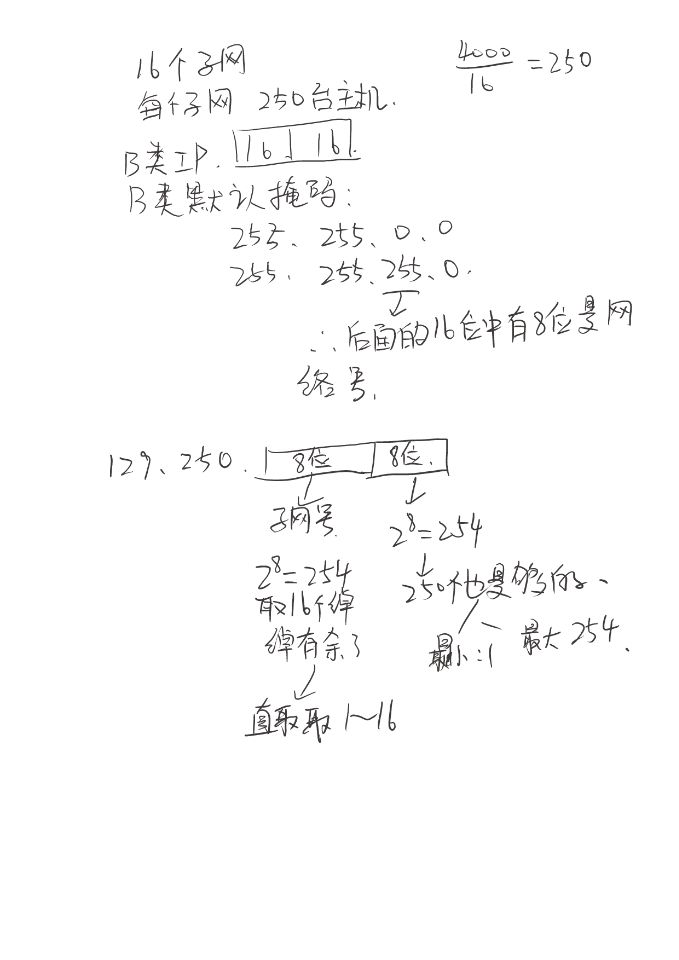 16个子网
4000
16
=250
每个子网 250台主机.
B类IP. 16 16
B类默认掩码:
255、255、0、0
255、255、255、0.
∴后面的16位中有8位是网
络号.
129、250. 8位 8位.
子网号
2⁸=254
2⁸=254
250个也是够的、
取16个绰
绰有余了
最小:1
最大254.
直取取1~16